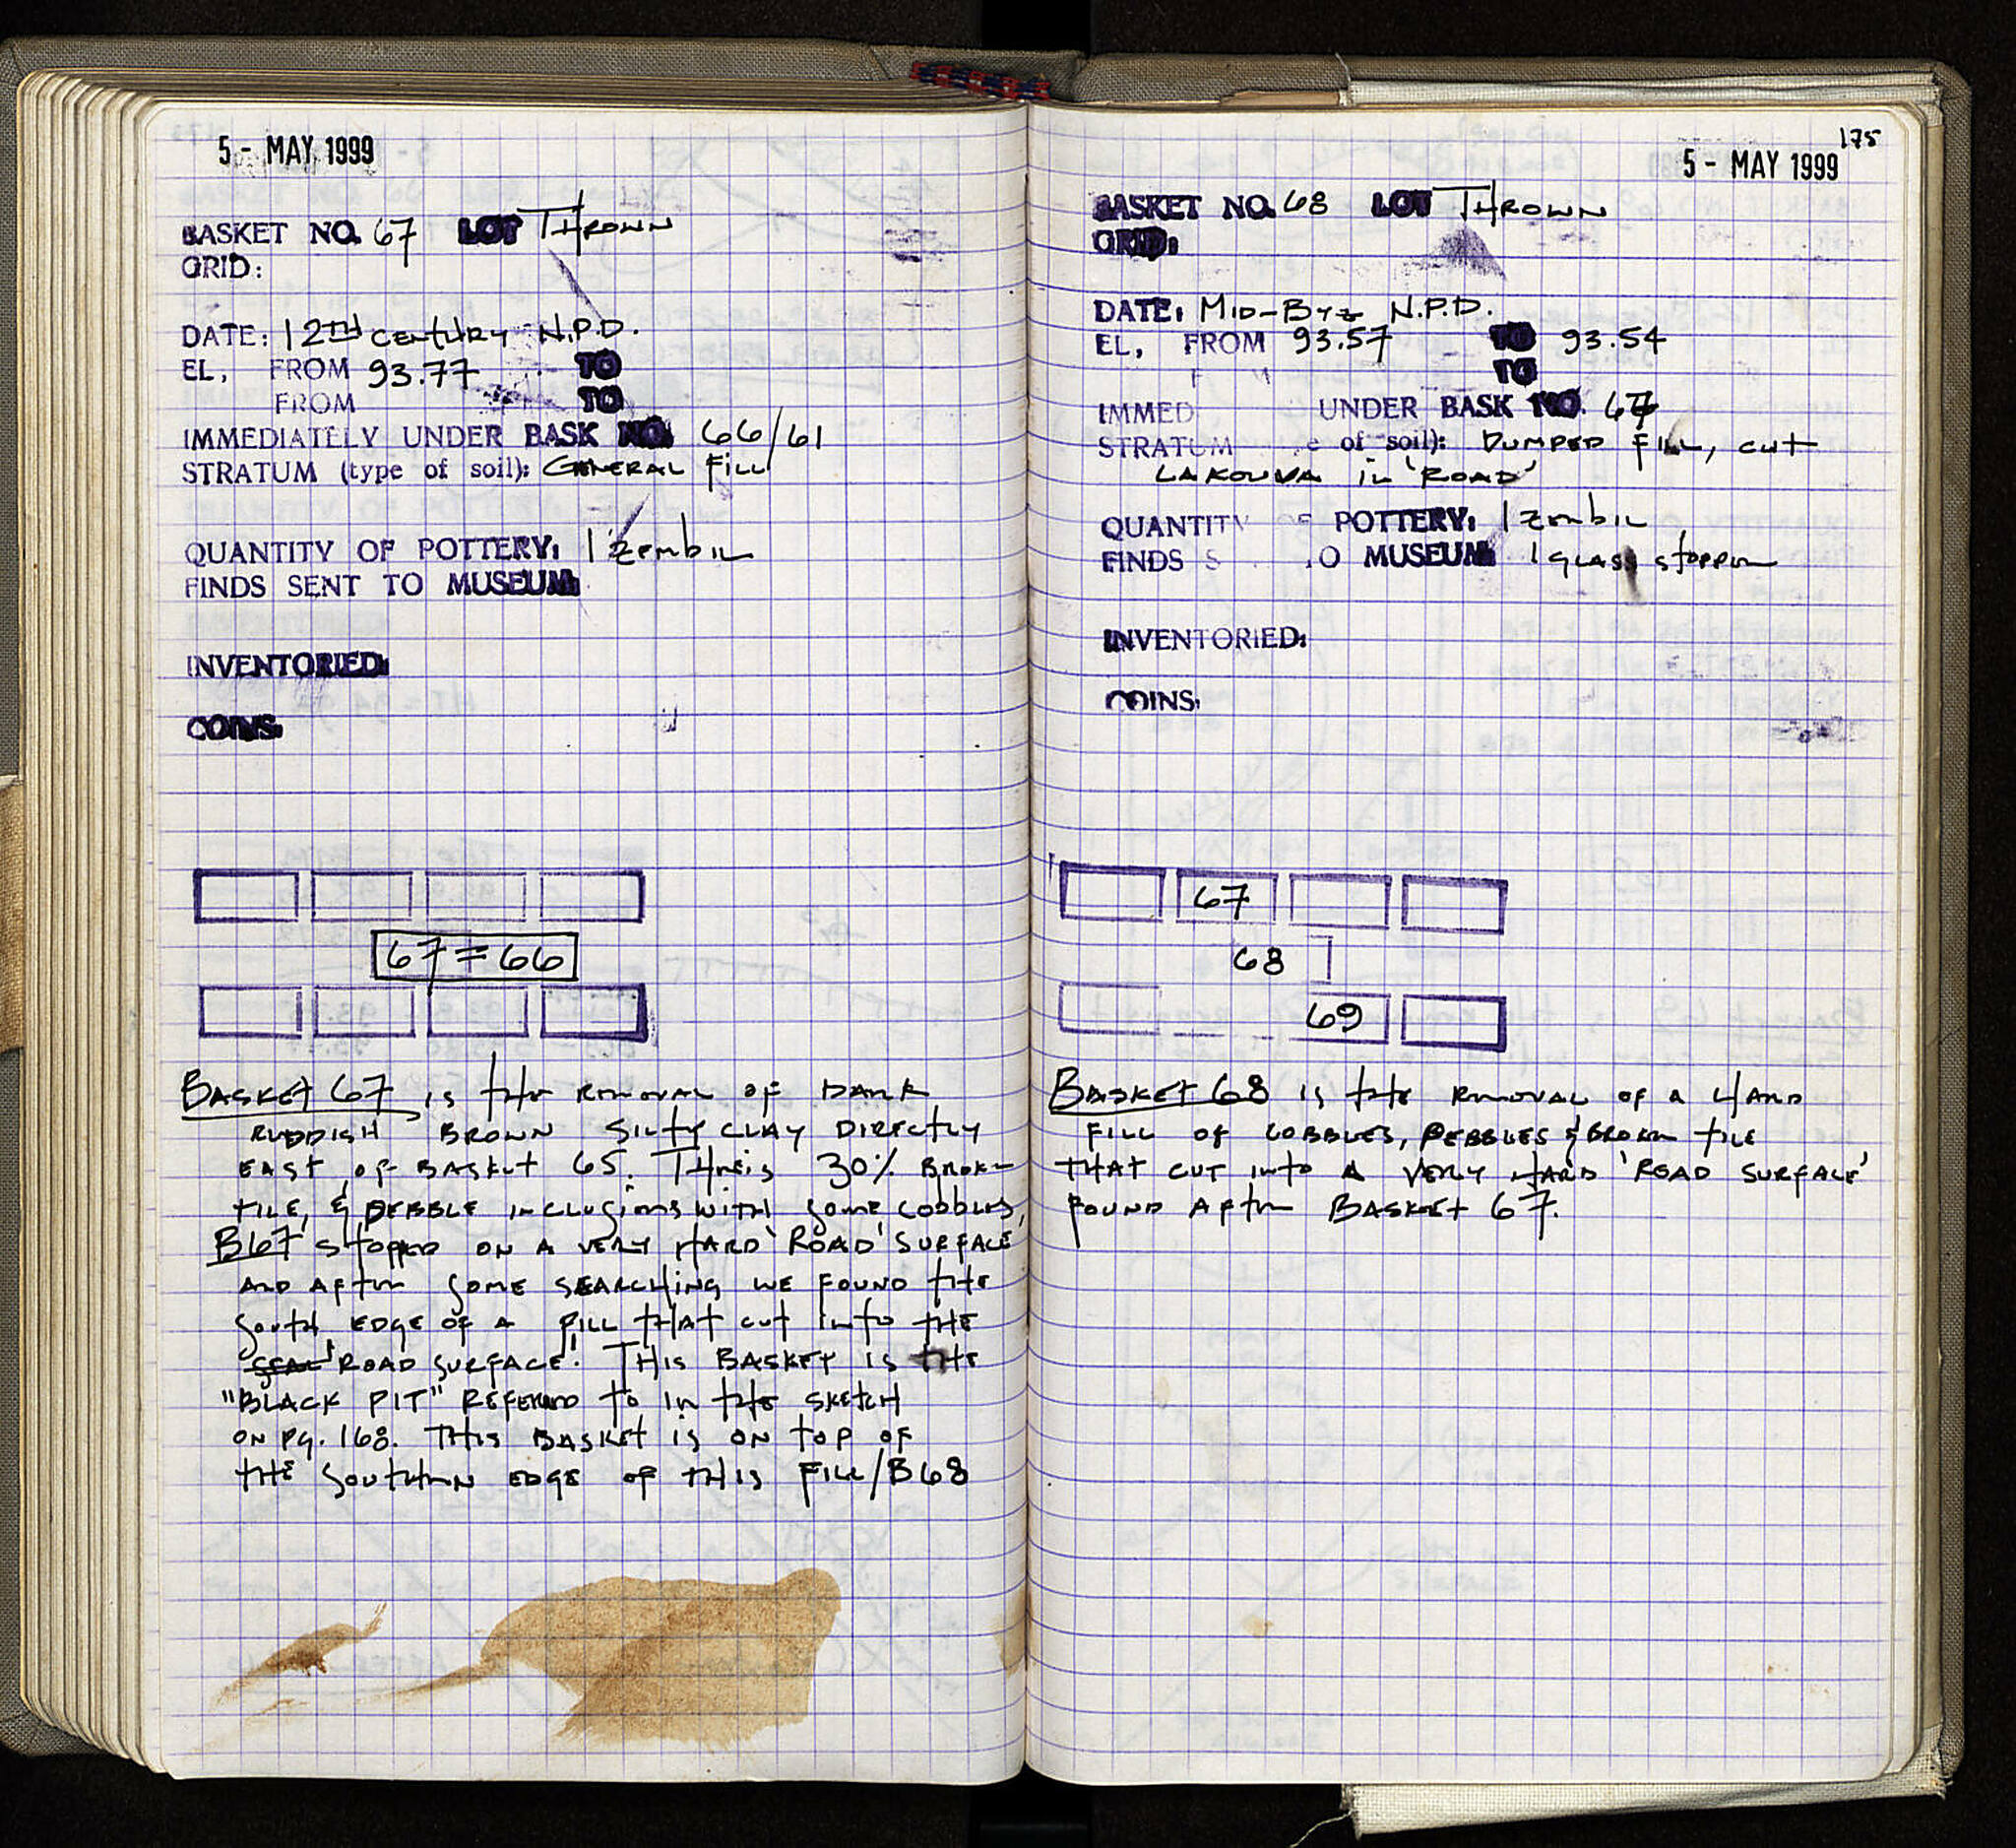 5 - MAY 1999
BASKET NO. 67 LOT THROWN
GRID:
DATE: 12TH CENTURY N.P.D.
EL, FROM 93.77 TO
FROM TO
IMMEDIATELY UNDER BASK NO. 66/61
STRATUM (type of soil): GENERAL FILL
QUANTITY OF POTTERY: 1 ZEMBIL
FINDS SENT TO MUSEUM:
INVENTORIED:
COINS:
67 = 66
BASKET 67 is the REMOVAL OF DARK
RUDDISH BROWN SILTY CLAY DIRECTLY
EAST OF BASKET 65. There is 30% BROKEN
TILE, & PEBBLE INCLUSIONS WITH SOME COBBLES,
B67 STOPPED ON A VERY HARD 'ROAD' SURFACE
AND AFTER SOME SEARCHING WE FOUND THE
SOUTH EDGE OF A FILL THAT CUT INTO THE
'ROAD SURFACE'. THIS BASKET IS THE
"BLACK PIT" REFERRED TO IN THE SKETCH
ON PG. 168. THIS BASKET IS ON TOP OF
THE SOUTHERN EDGE OF THIS FILL/B68
175
5 - MAY 1999
BASKET NO. 68 LOT THROWN
GRID:
DATE: MID-BYZ N.P.D.
EL, FROM 93.57 TO 93.54
TO
IMMED UNDER BASK NO. 67
STRATUM e of soil): DUMPED FILL, CUT
LAKOUVA IN 'ROAD'
QUANTITY OF POTTERY: 1 ZEMBIL
FINDS S O MUSEUM 1 GLASS STOPPER
INVENTORIED:
COINS:
67
68
69
BASKET 68 IS THE REMOVAL OF A HARD
FILL OF COBBLES, PEBBLES & BROKEN TILE
THAT CUT INTO A VERY HARD 'ROAD SURFACE'
FOUND AFTER BASKET 67.